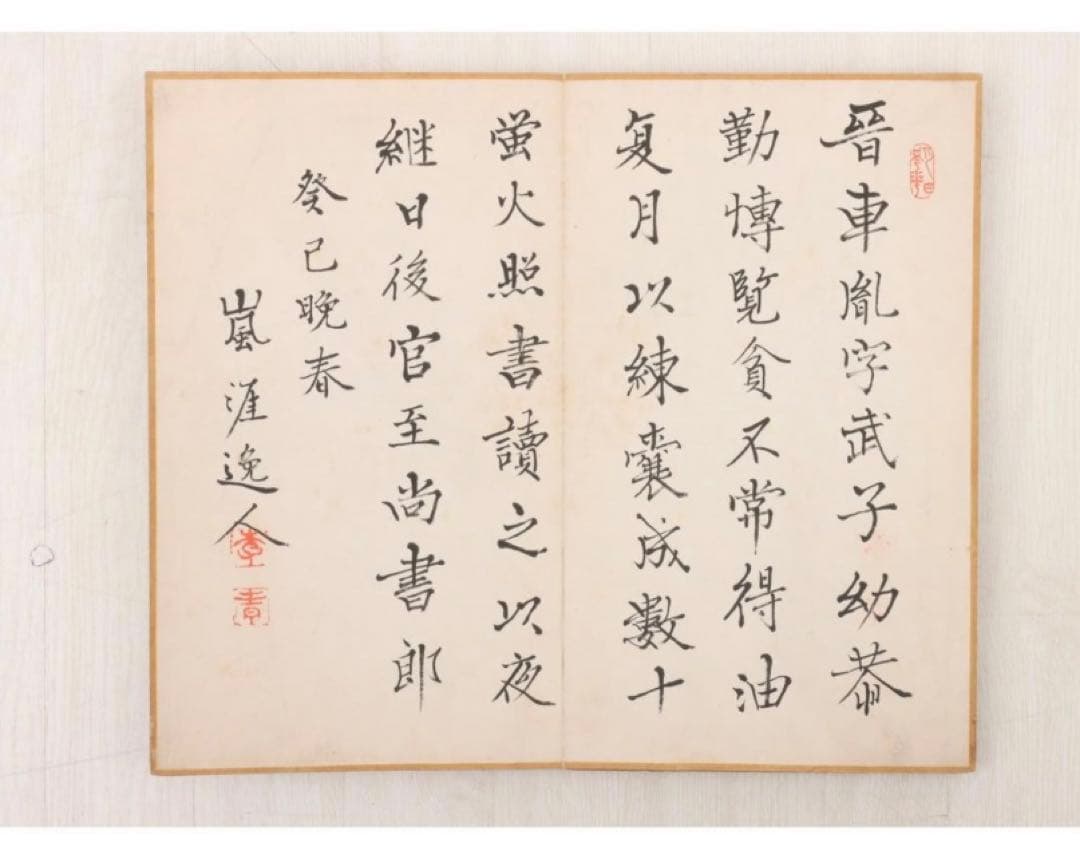 晉車胤字武子幼恭
勤博覽貧不常得油
夏月以練囊成數十
螢火照書讀之以夜
繼日後官至尚書郎
癸巳晚春
嵐漄逸人